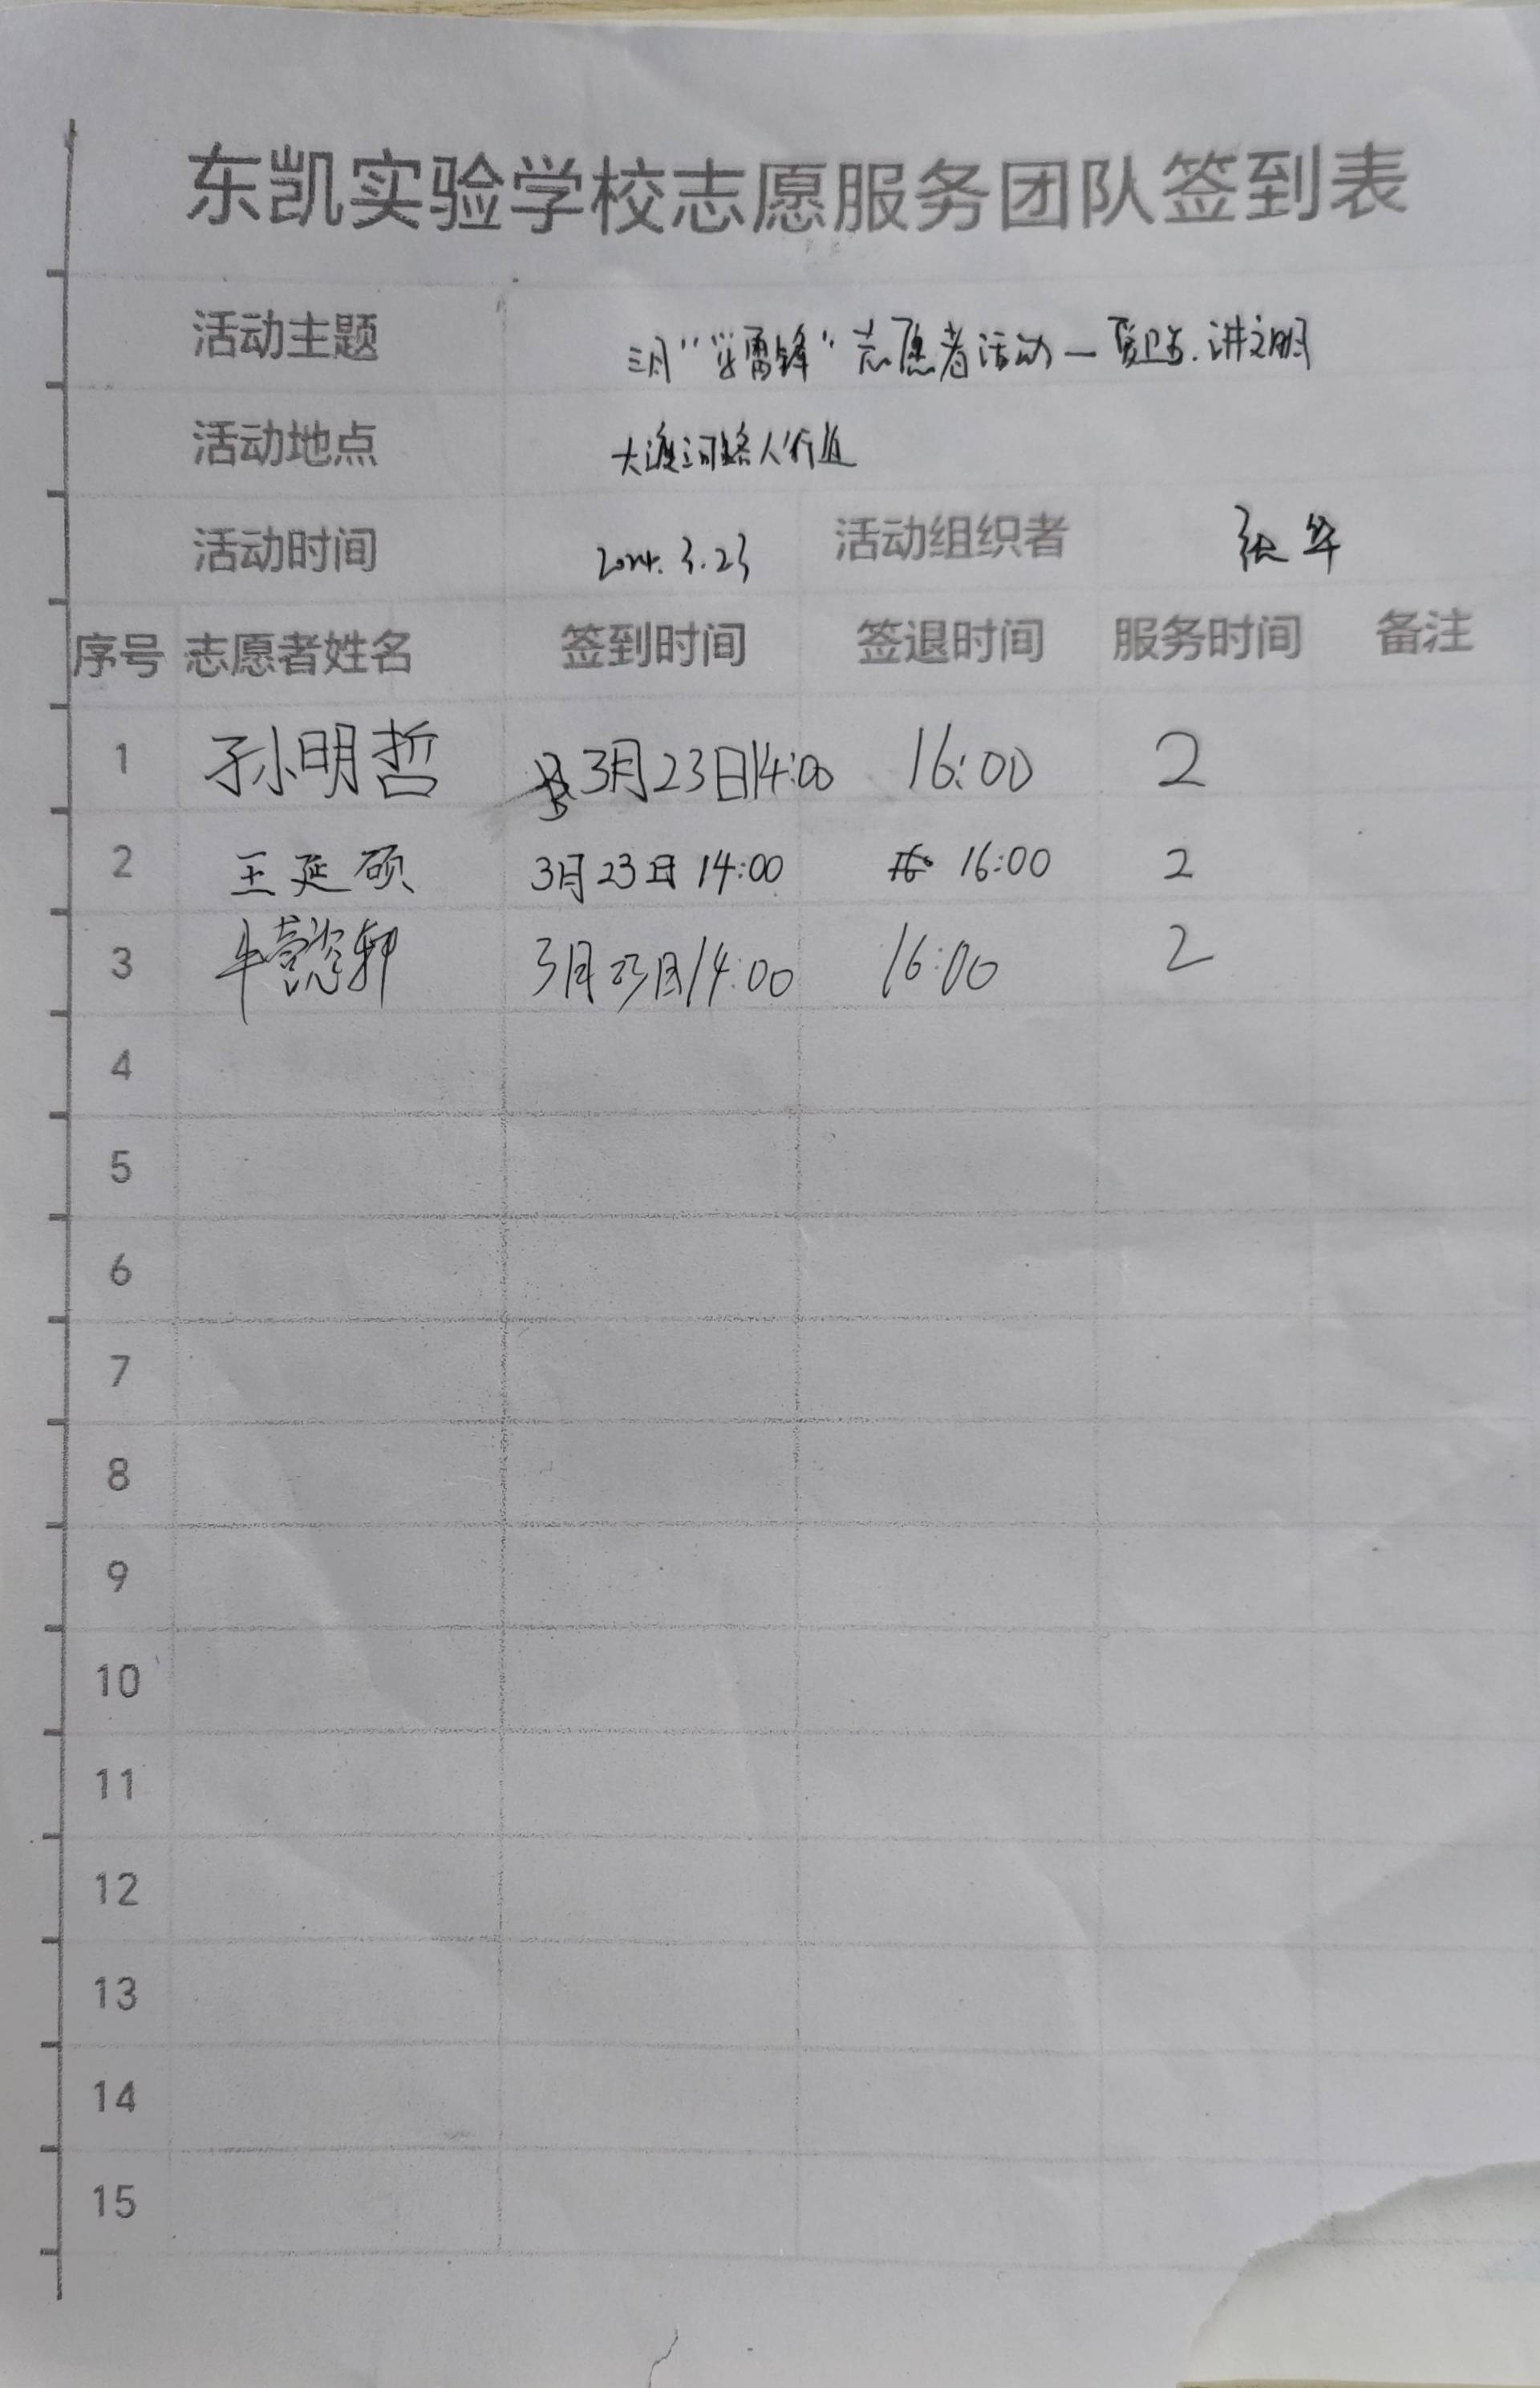 东凯实验学校志愿服务团队签到表
活动主题 三月“学雷锋”志愿者活动—爱卫生.讲文明
活动地点 大渡河路人行道
活动时间 2024.3.23 活动组织者 张华
序号 志愿者姓名 签到时间 签退时间 服务时间 备注
1 孙明哲 3月23日14:00 16:00 2
2 王延硕 3月23日 14:00 16:00 2
3 牛 轩 3月23日14:00 16:00 2
4
5
6
7
8
9
10
11
12
13
14
15